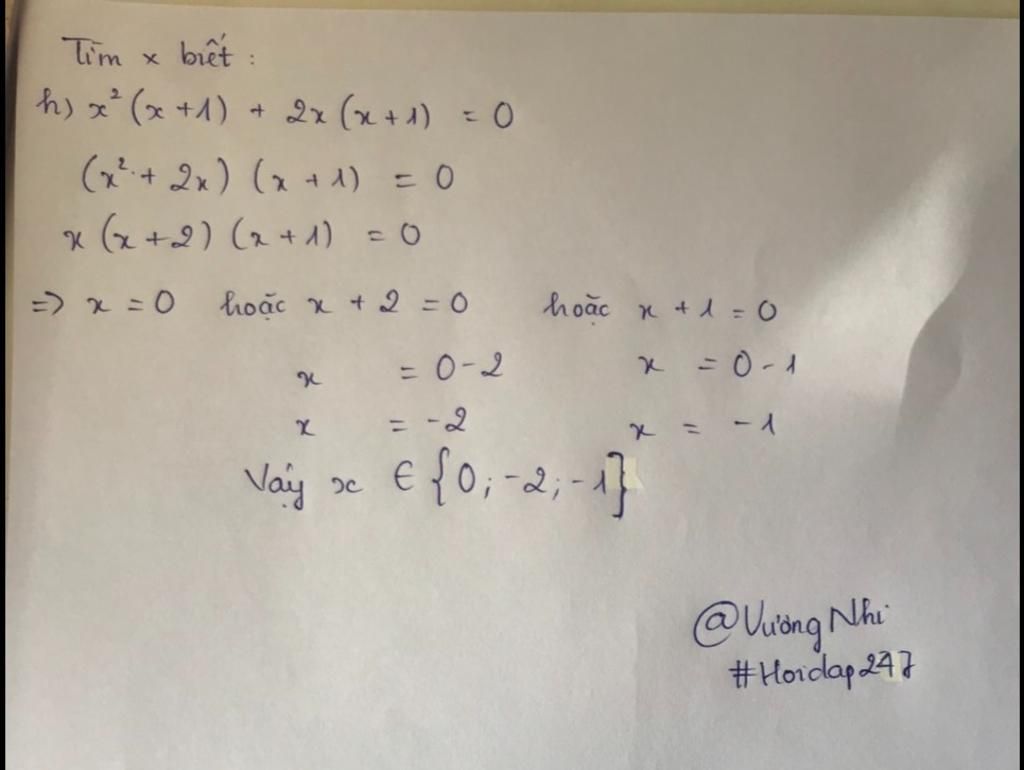 Tìm x biết :
h) x²(x+1) + 2x(x+1) = 0
(x²+ 2x) (x+1) = 0
x (x+2) (x+1) = 0
=> x = 0 hoặc x + 2 = 0 hoặc x + 1 = 0
x = 0-2 x = 0-1
x = -2 x = -1
Vậy x ∈ {0; -2; -1}
@Vương Nhi
#Hoidap247